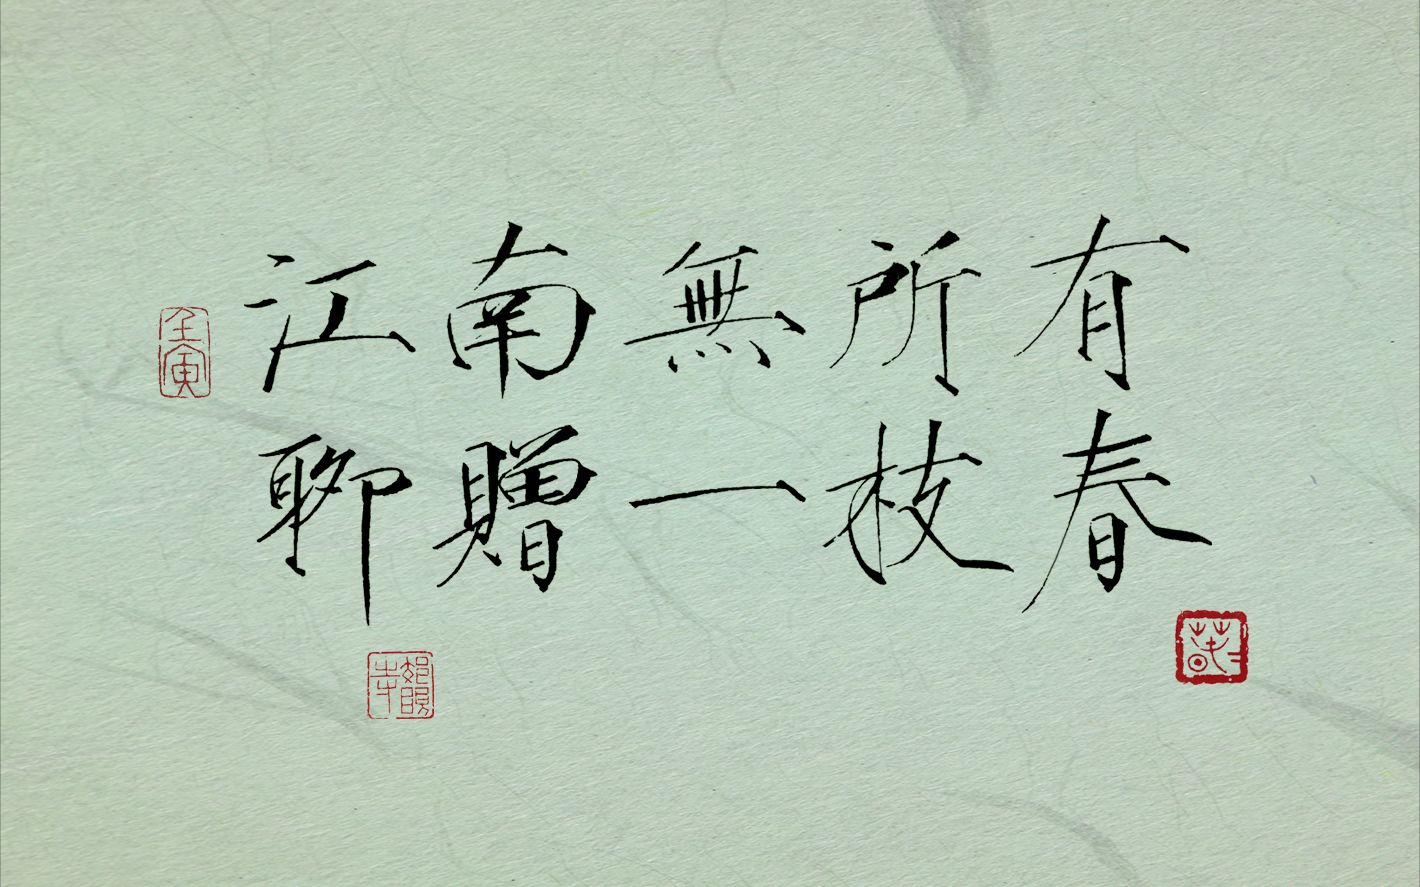 江南無所有
聊贈一枝春
壬寅